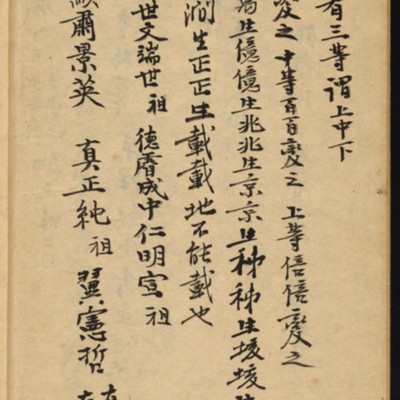 有三等謂上中下
變之 中等百百變之 上等倍倍變之
萬生億億生兆兆生京京生秭秭生垓垓
澗生正正生載載地不能載也
世文端世祖 德睿成中仁明宣祖
顯肅景英 真正純祖 翼憲哲